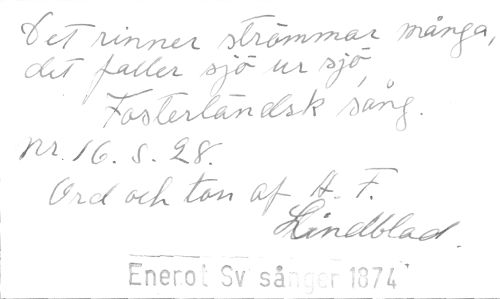 Det rinner strömmar många,
det faller sjö ur sjö,
Fosterländsk sång.
Nr. 16. s. 28.
Ord och ton af H. F.
Lindblad.
Sv sånger 1874